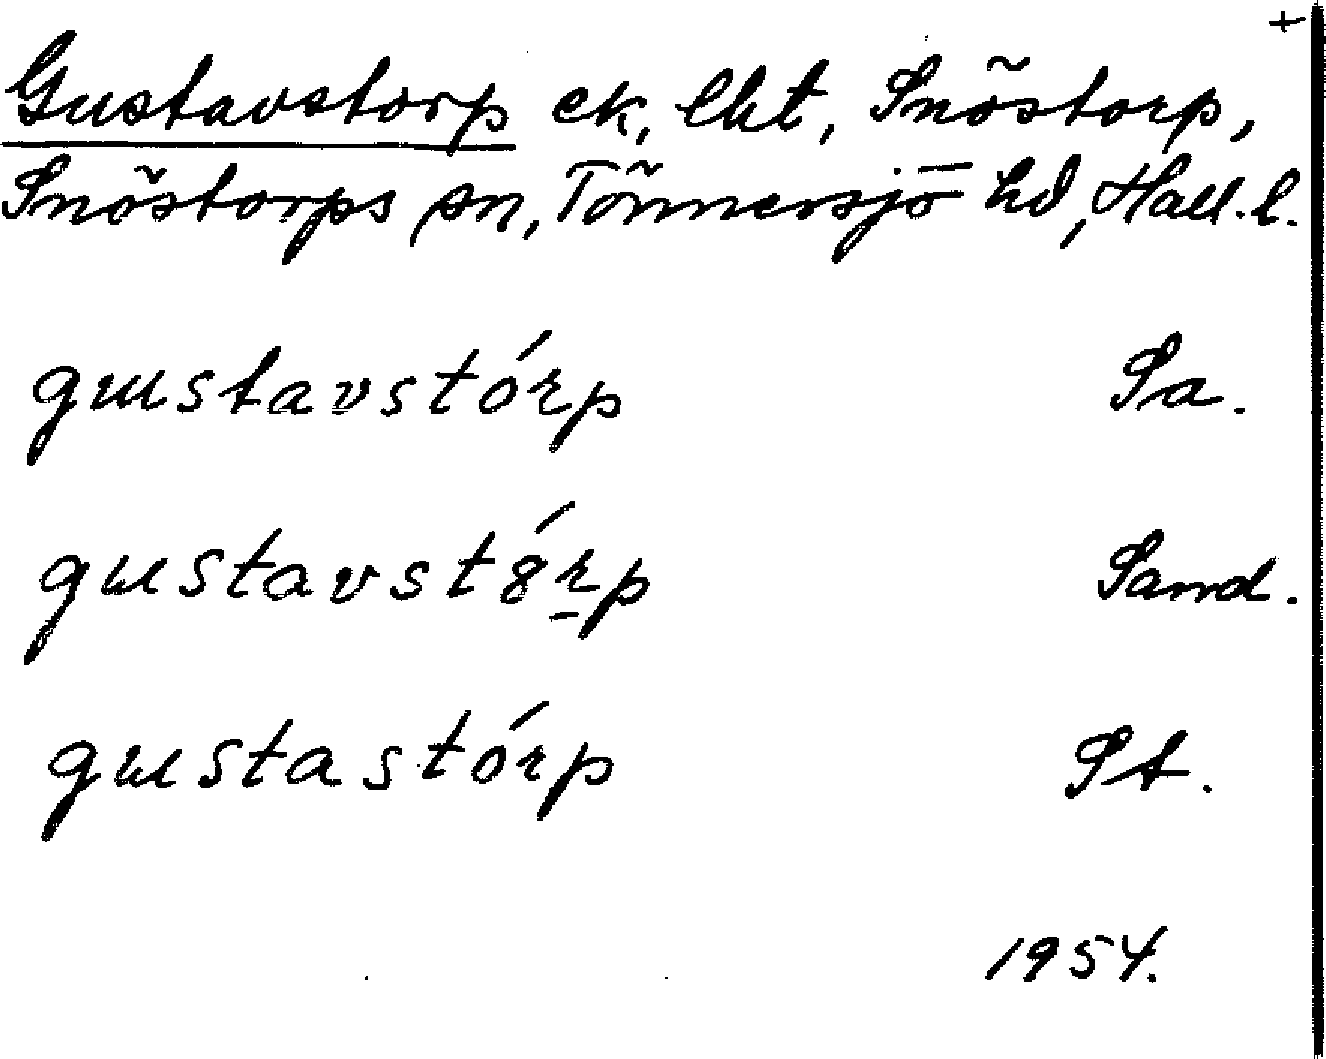 +
Gustavstorp ek, lht, Snöstorp,
Snöstorps sn, Tönnersjö hd, Hall. l.
gustavstórp Sa.
gustavstȣ́r̲p Sand.
gustastórp St.
1954.